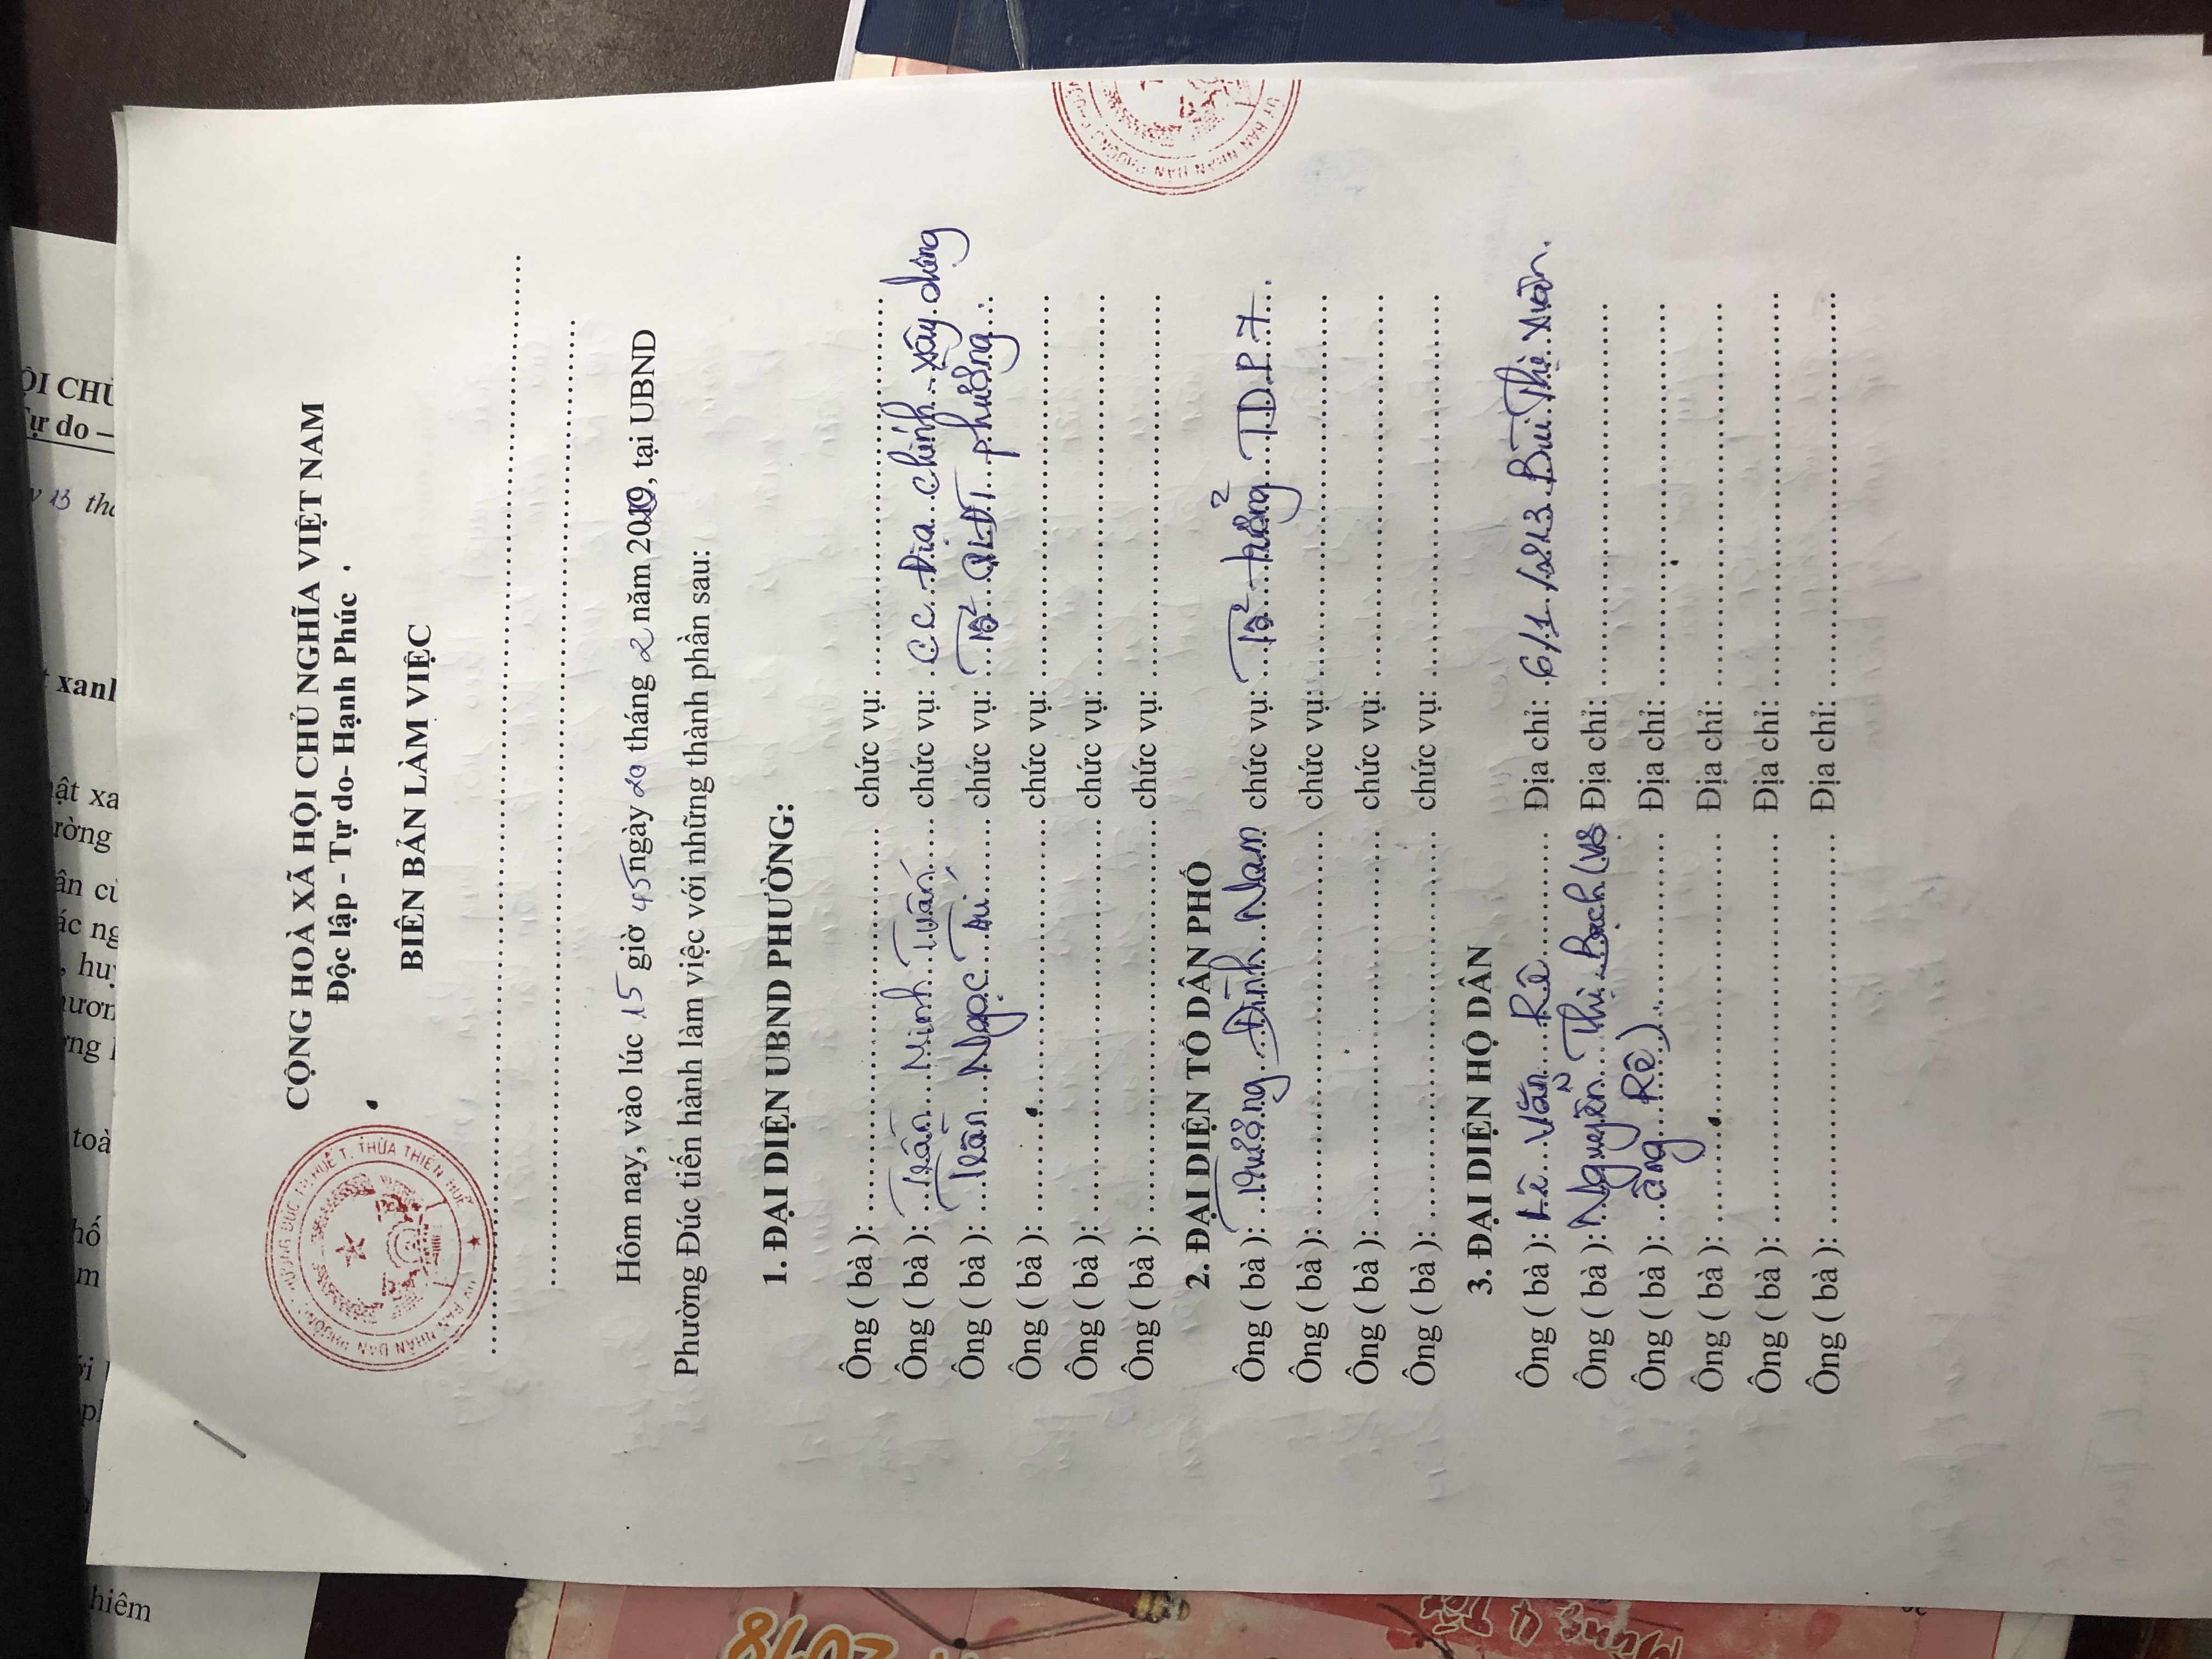 CỘNG HOÀ XÃ HỘI CHỦ NGHĨA VIỆT NAM
Độc lập - Tự do- Hạnh Phúc
BIÊN BẢN LÀM VIỆC
Hôm nay, vào lúc 15 giờ 45 ngày 20 tháng 2 năm 2019, tại UBND
Phường Đúc tiến hành làm việc với những thành phần sau:
1. ĐẠI DIỆN UBND PHƯỜNG:
Ông ( bà ): chức vụ:
Ông ( bà ): Trần Minh Tuấn chức vụ: CC Địa chính - xây dựng
Ông ( bà ): Trần Ngọc chức vụ: Tổ QLĐT phường
Ông ( bà ): chức vụ:
Ông ( bà ): chức vụ:
Ông ( bà ): chức vụ:
2. ĐẠI DIỆN TỔ DÂN PHỐ
Ông ( bà ): Trương Đình Nam chức vụ: Tổ trưởng TDP 7
Ông ( bà ): chức vụ:
Ông ( bà ): chức vụ:
Ông ( bà ): chức vụ:
3. ĐẠI DIỆN HỘ DÂN
Ông ( bà ): Lê Văn Rê Địa chỉ: 6/1/243 Bùi Thị Xuân.
Ông ( bà ): Nguyễn Thị Bạch (vợ Địa chỉ:
Ông ( bà ): ông Rê) Địa chỉ:
Ông ( bà ): Địa chỉ:
Ông ( bà ): Địa chỉ:
Ông ( bà ): Địa chỉ:
ỘI CHỦ
Tự do –
13
xanh
toà
hiêm
2018